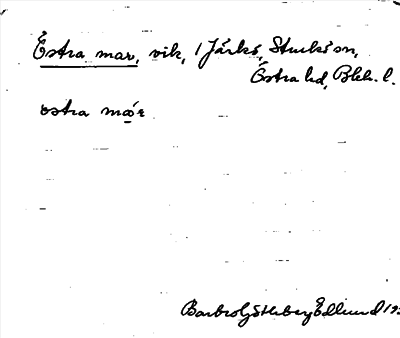 Östra mar, vik, 1 Järkö, Sturkö sn,
Östra hd, Blek. l.
ostra mar
Barbro Götlberg Edlund 19